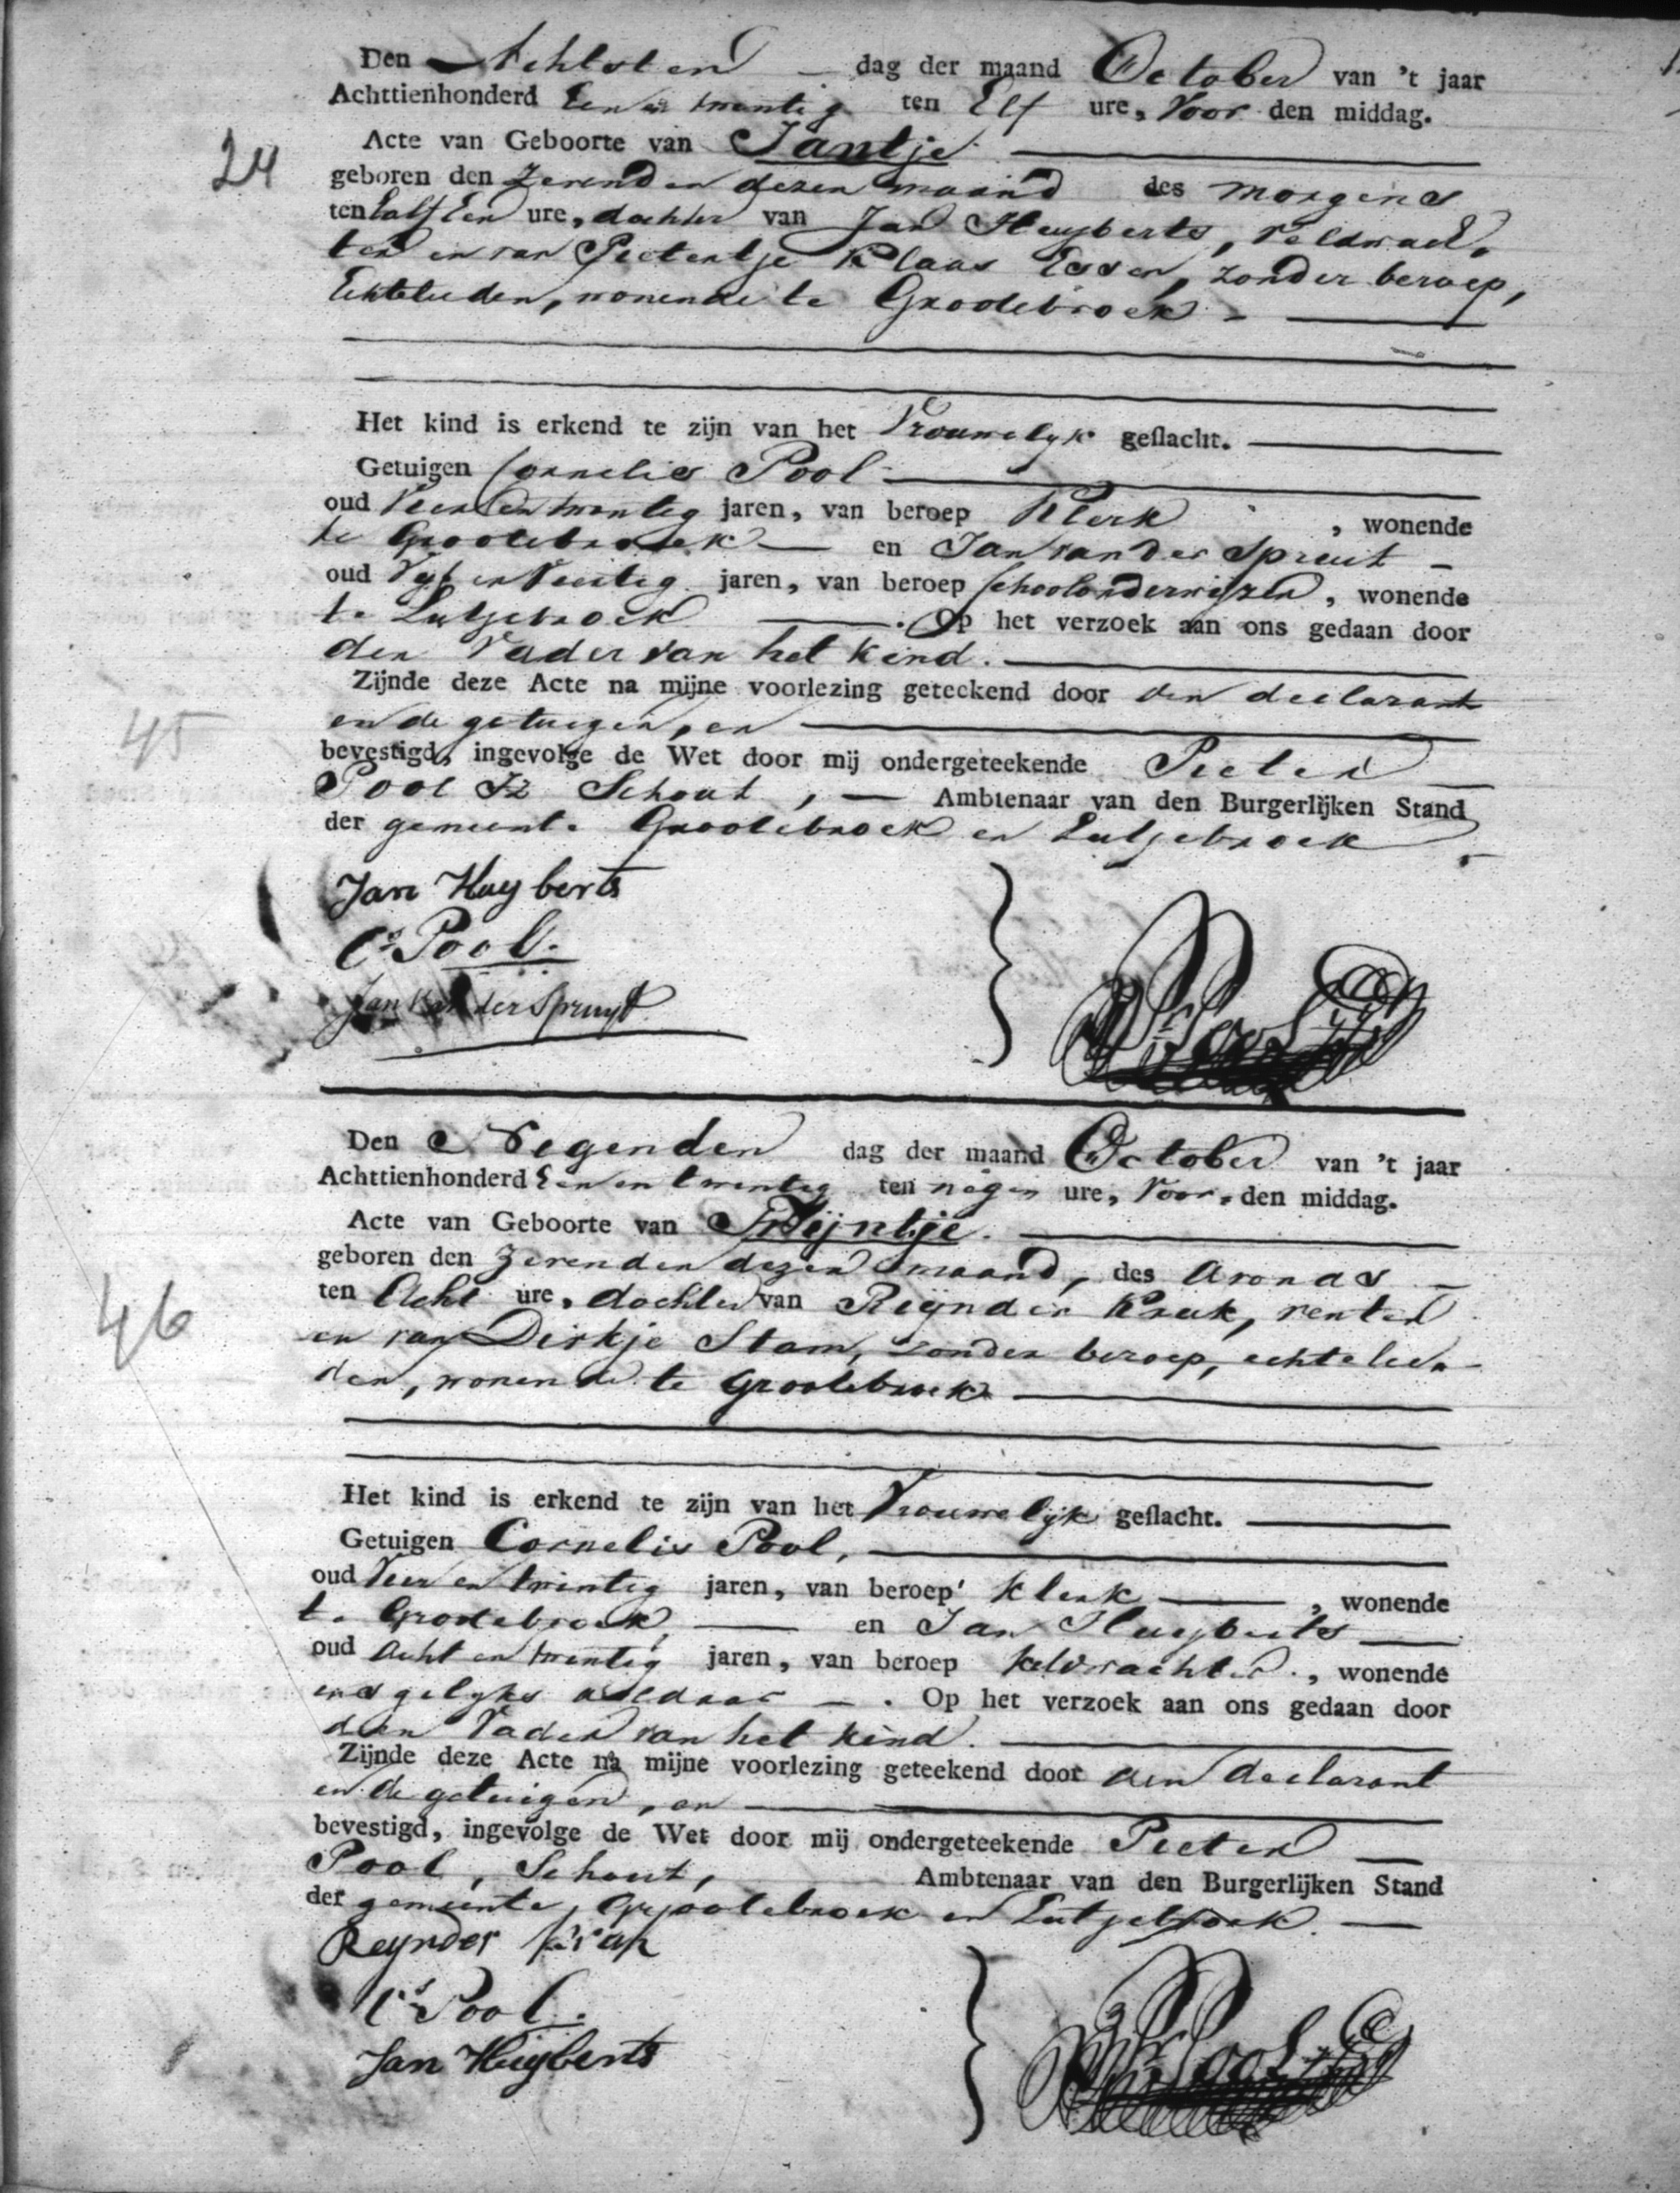 Den Achtsten dag der maand October van 't jaar
Achttienhonderd Een en twentig ten Elf ure, Voor den middag.
24
Acte van Geboorte van Jantje
geboren den Zevenden dezen maand des morgens
ten half Een ure, dochter van Jan Huyberts, veldwach,
ter en van Pietertje Klaas Esser, zonder beroep,
Echtelieden, wonende te Grootebroek
Het kind is erkend te zijn van het Vrouwelyk geslacht.
Getuigen Cornelis Pool
oud Vier en twentig jaren, van beroep Klerk, wonende
te Grootebroek en Jan van der Spruit
oud Vyf en Veertig jaren, van beroep Schoolonderwijzer, wonende
te Lutjebroek. Op het verzoek aan ons gedaan door
den Vader van het kind.
Zijnde deze Acte na mijne voorlezing geteekend door den declarant
45
en de getuigen, en
bevestigd, ingevolge de Wet door mij ondergeteekende Pieter
Pool Jz Schout, Ambtenaar van den Burgerlijken Stand
der gemeente Grootebroek en Lutjebroek.
Jan Huyberts
Cs Pool.
Jan Van der Spruyt
Pr Pool
Den Negenden dag der maand October van 't jaar
Achttienhonderd Een en twentig ten negen ure, Voor den middag.
Acte van Geboorte van Trijntje.
geboren den Zevenden dezen maand, des avonds
46
ten Acht ure, dochter van Reijnder Kruk, renter
en van Dirkje Stam, zonder beroep, echtelie,
den, wonende te Grootebroek
Het kind is erkend te zijn van het Vrouwelijk geslacht.
Getuigen Cornelis Pool,
oud Vier en twintig jaren, van beroep klerk, wonende
te Grootebroek, en Jan Huyberts
oud acht en twentig jaren, van beroep veldwachter, wonende
insgelyks aldaar. Op het verzoek aan ons gedaan door
den Vader van het kind.
Zijnde deze Acte na mijne voorlezing geteekend door den declarant
en de getuigen, en
bevestigd, ingevolge de Wet door mij ondergeteekende Pieter
Pool, Schout, Ambtenaar van den Burgerlijken Stand
der gemeente, Grootebroek en Lutjebroek.
Reynder
Cs Pool.
Jan Huyberts
Pr Pool